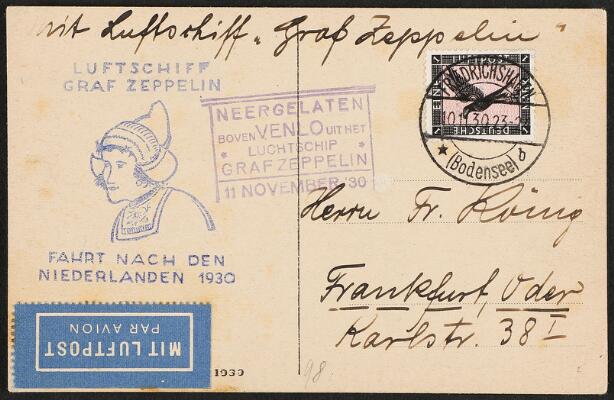 Mit Luftschiff „Graf Zeppelin“
LUFTSCHIFF
GRAF ZEPPELIN
FAHRT NACH DEN
NIEDERLANDEN 1930
NEERGELATEN
BOVEN VENLO UIT HET
* LUCHTSCHIP *
GRAF ZEPPELIN
11 NOVEMBER '30
LUFTPOST
DEUTSCHE
FRIEDRICHSHAFEN
10.11.30.23-
★ (Bodensee) b
Herrn Fr. König
Frankfurt, Oder
Karlstr. 38 I
MIT LUFTPOST
PAR AVION
1930
98.